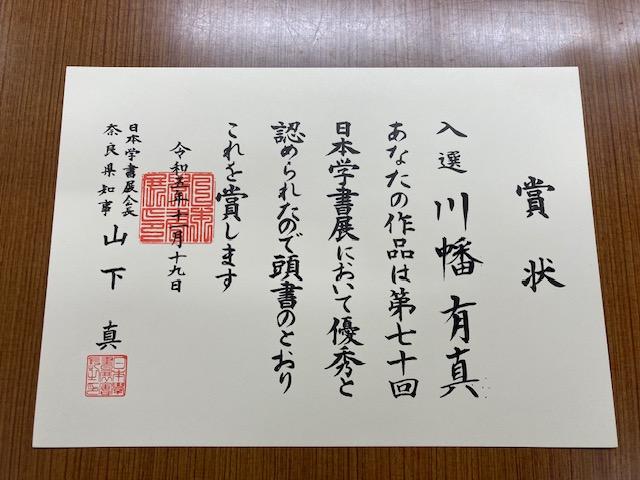 賞状
入選 川幡有真
あなたの作品は第七十回
日本学書展において優秀と
認められたので頭書のとおり
これを賞します
令和五年十一月十九日
日本学書展会長
奈良県知事 山下 真